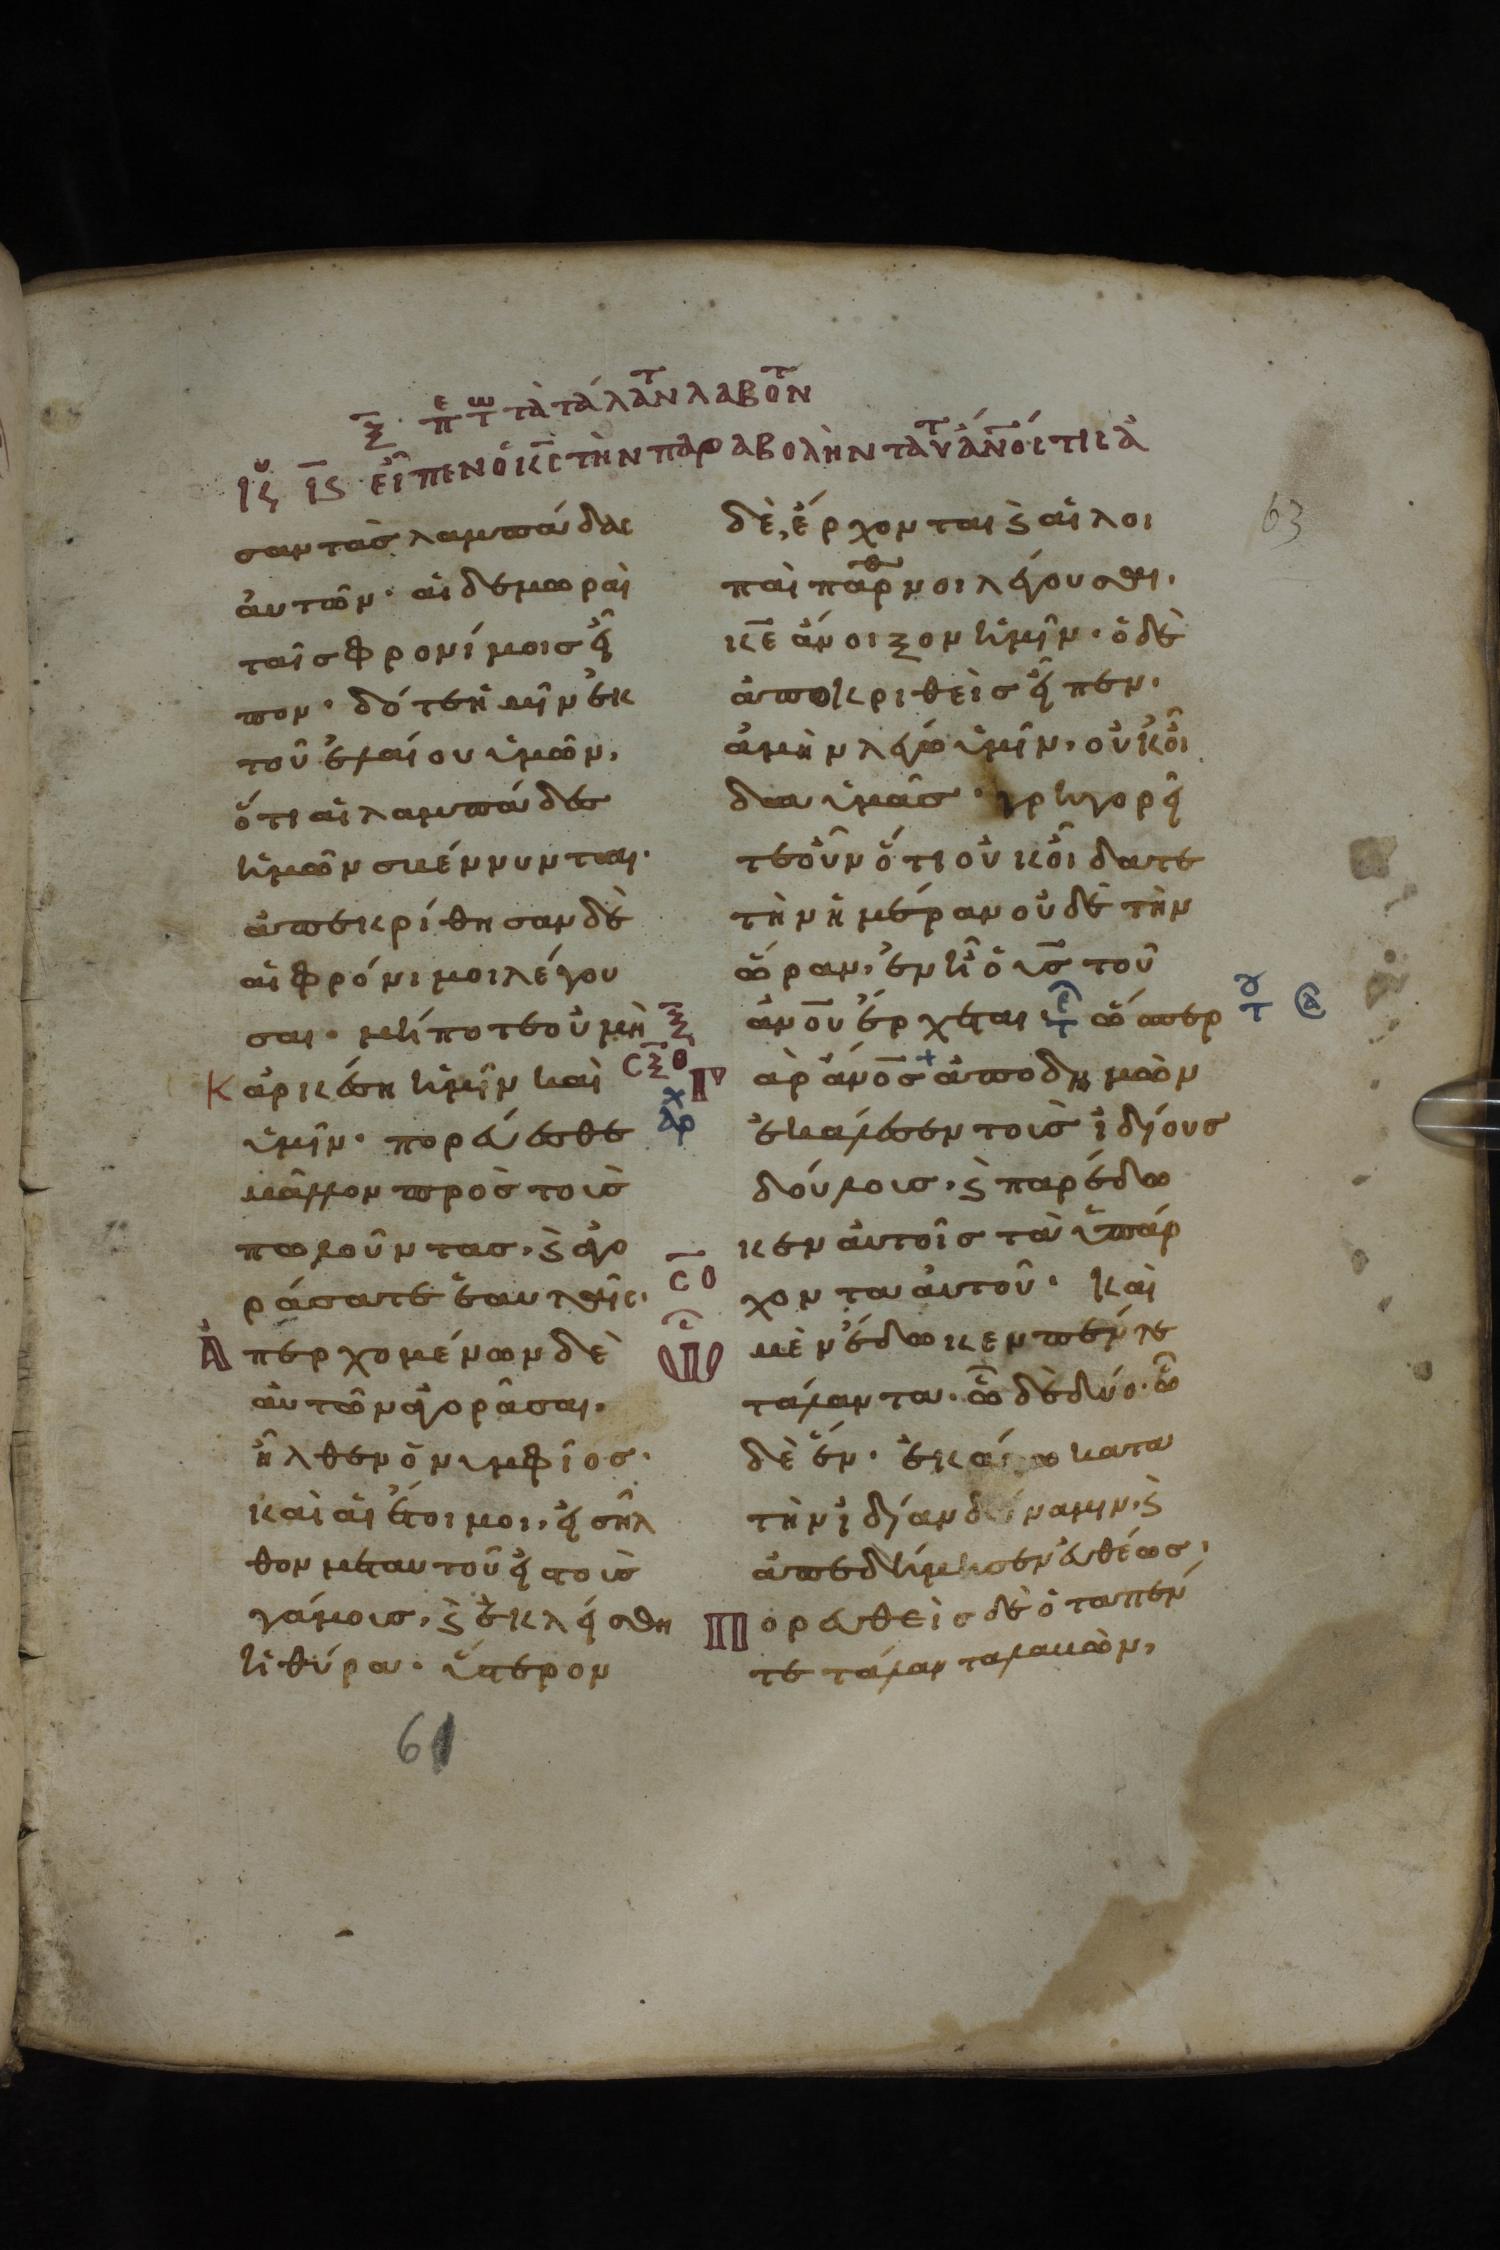 ξ̅. π̅ε τ̅ω τὰ τάλαν̅τ λαβόν̅τ
ιζ ις̅ εἶπεν ὁ κ̅ς τὴν παραβολὴν ταύ̅τ ἀν̅ός τις ἀ
63
σαν τὰς λαμπάδας
ἀυτῶν· αἱ δε μωραὶ
ταῖς φρονίμοις εἶ
πον· δότε ἡμῖν ἐκ
τοῦ ἐλαίου ὑμῶν,
ὅτι αἱ λαμπάδες
ἡμῶν σβέννυνται·
ἀπεκρίθησαν δὲ
αἱ φρόνιμοι λέγου
σαι· μήποτε οὐ μὴ
ἀρκέση ἡμῖν καὶ
ὑμῖν· πορεύεσθε
μᾶλλον πρὸς τοὺς
πωλοῦντας, ϗ ἀγο
ράσατε ἑαυταῖς·
Ἀπερχομένων δὲ
ἀυτῶν ἀγορᾶσαι,
ἦλθεν ὁ νυμφίος·
καὶ αἱ ἕτοιμοι, εἰσῆλ
θον μετ αυτοῦ εἰς τοὺς
γάμους, ϗ ἐκλείσθη
ἡ θύρα· ὕστερον
61
ξ̅
σξ̅θ
Κ
χ
ἀρ
σ̅ο
δὲ, ἔρχονται ϗ αἱ λοι
παὶ παρθ̅νοι λέγουσαι,
κ̅ε ἄνοιξον ἡμῖν· ὁ δὲ
ἀποκριθεὶς εἶπεν·
ἀμὴν λέγω ὑμῖν, οὐκ οἶ
δα ὑμᾶς· γρηγορεῖ
τε οὖν ὅτι οὐκ οἴδατε
τὴν ἡμέραν οὐδὲ τὴν
ὥραν, ἐν ἧ ὁ υ̅ς τοῦ
ἀν̅ου ἔρχεται· ὥσπερ
γὰρ ἄν̅ος + ἀποδημῶν
ἐκάλεσεν τοὺς ἰδίους
δούλους, ϗ παρέδω
κεν ἀυτοῖς τὰ ὑπάρ
χοντα ἀυτοῦ· καὶ
ὧ μὲν ἔδωκεν πέντε
τάλαντα· ὧ δὲ δύο· ὧ
δὲ ἕν· ἑκάστω κατα
τὴν ἰδίαν δύναμιν, ϗ
ἀπεδήμησεν ἐυθέως,
Πορευθεὶς δὲ ὁ τα πέν
τε τάλαντα λαβὼν,